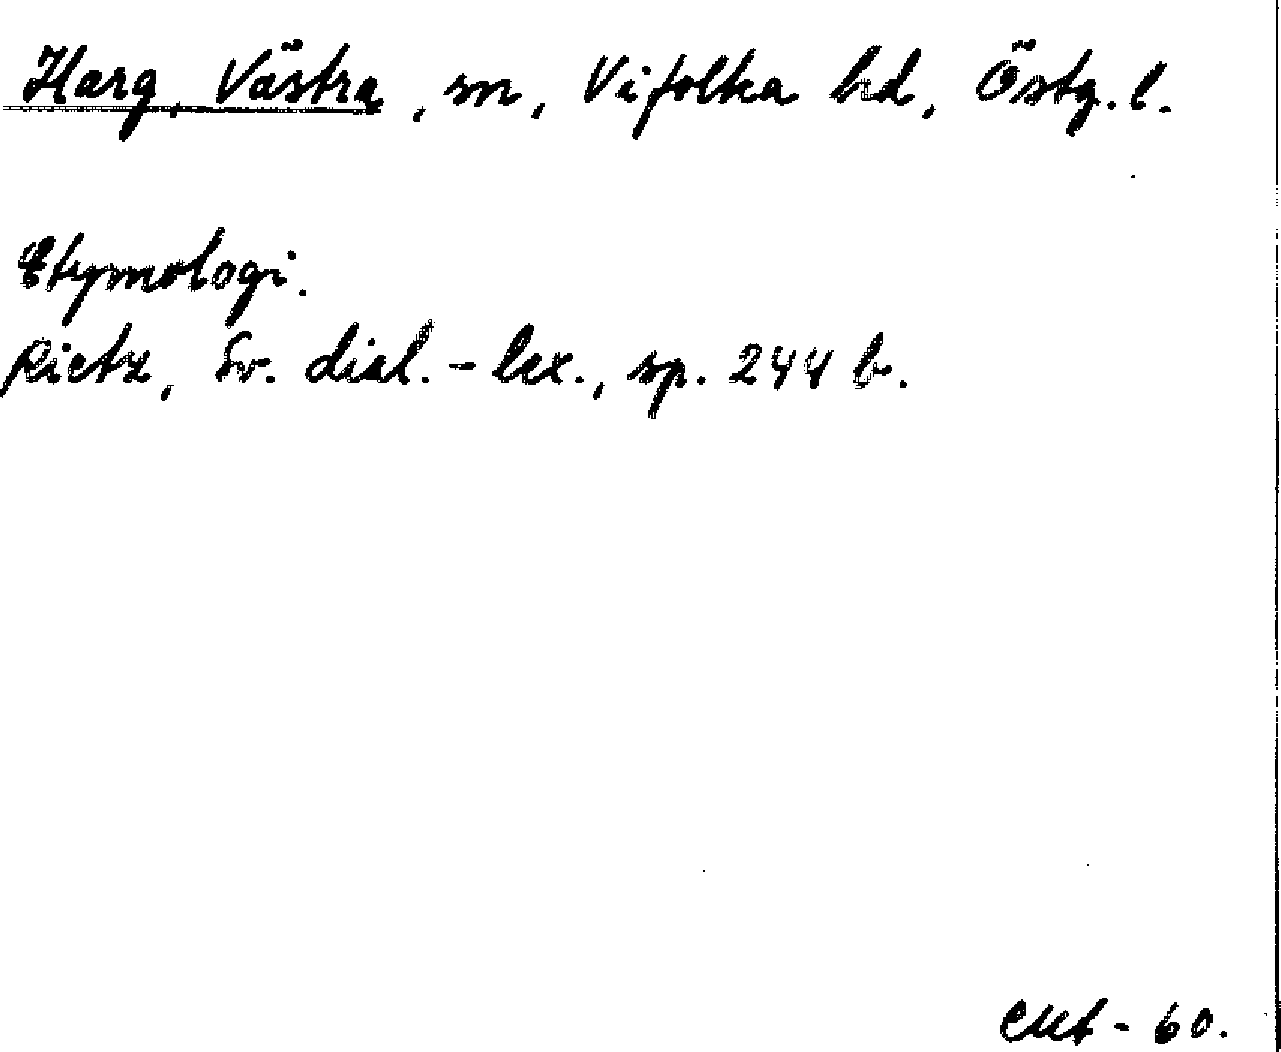 Harg, Västra, sn, Vifolka hd, Östg. l.
Etymologi.
Rietz, Sv. dial.-lex., sp. 244 b.
60.